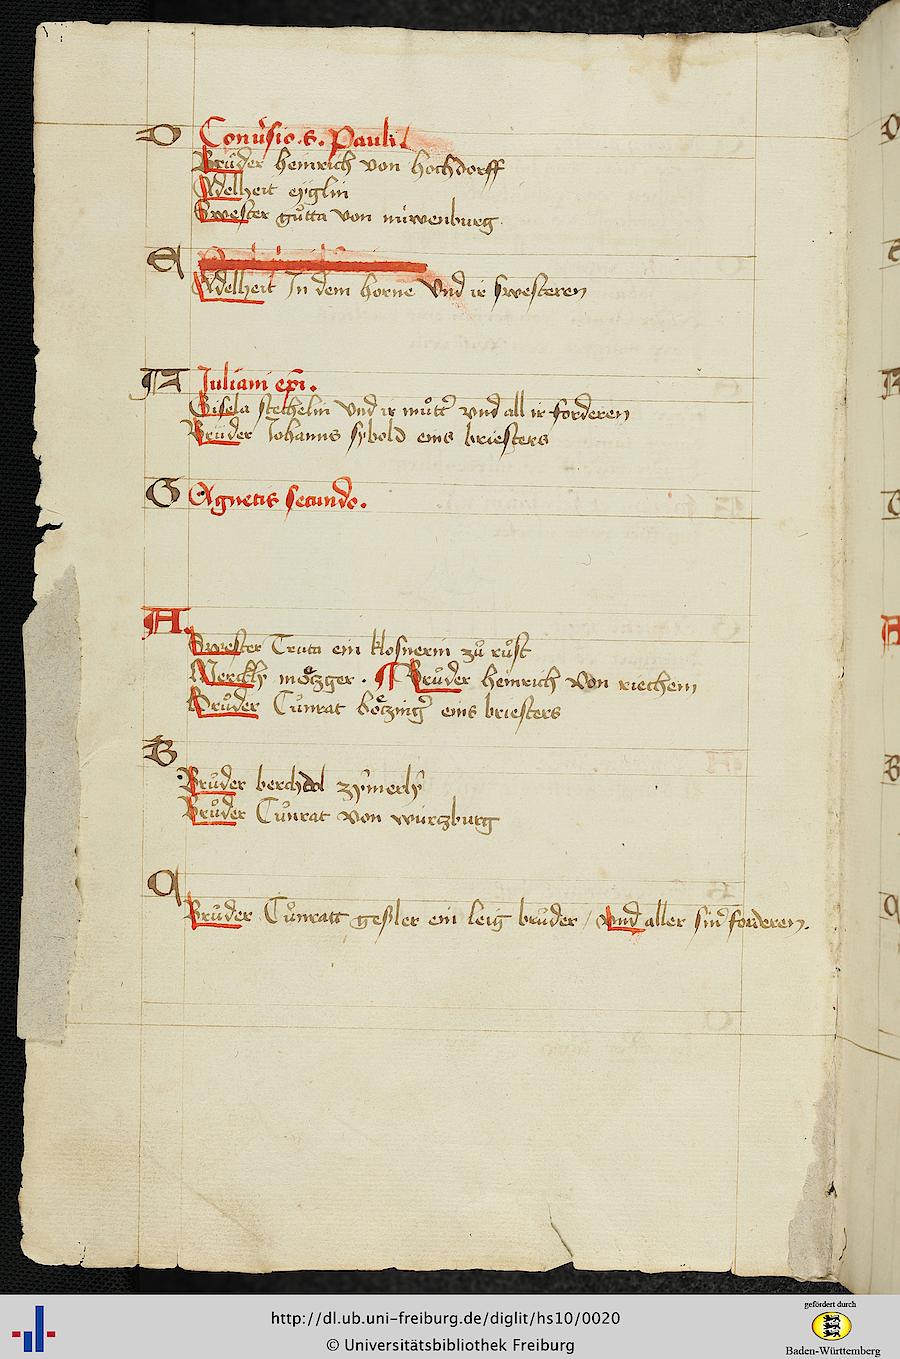 D Conu̾sio. S. Pauli
Brůder heinrich von hochdorff
Adelheit eÿglin
Swester gůtta von nüwenburg.
E
Adelheit In dem horne vnd ir swesteren
F Juliani epi̅.
Gisela stechelin vnd ir můtt̾ vnd all ir forderen
Brůder Johanns sybold eins briesters
G Agnetis secundo.
A.
Swester Truta ein klosnerin zů růst
Merckly moͤtzger . ¶ Brůder heinrich von riechem
Brůder Cůnrat boͤtzing̾ eins briesters
B
Brůder berchtol zÿmerlÿ
Brůder Cůnrat von würczburg
C
Brůder Cůnratt geßler ein leig brůder / vnd aller sin̾ forderen.
http://dl.ub.uni-freiburg.de/diglit/hs10/0020
© Universitätsbibliothek Freiburg
gefördert durch
Baden-Württemberg